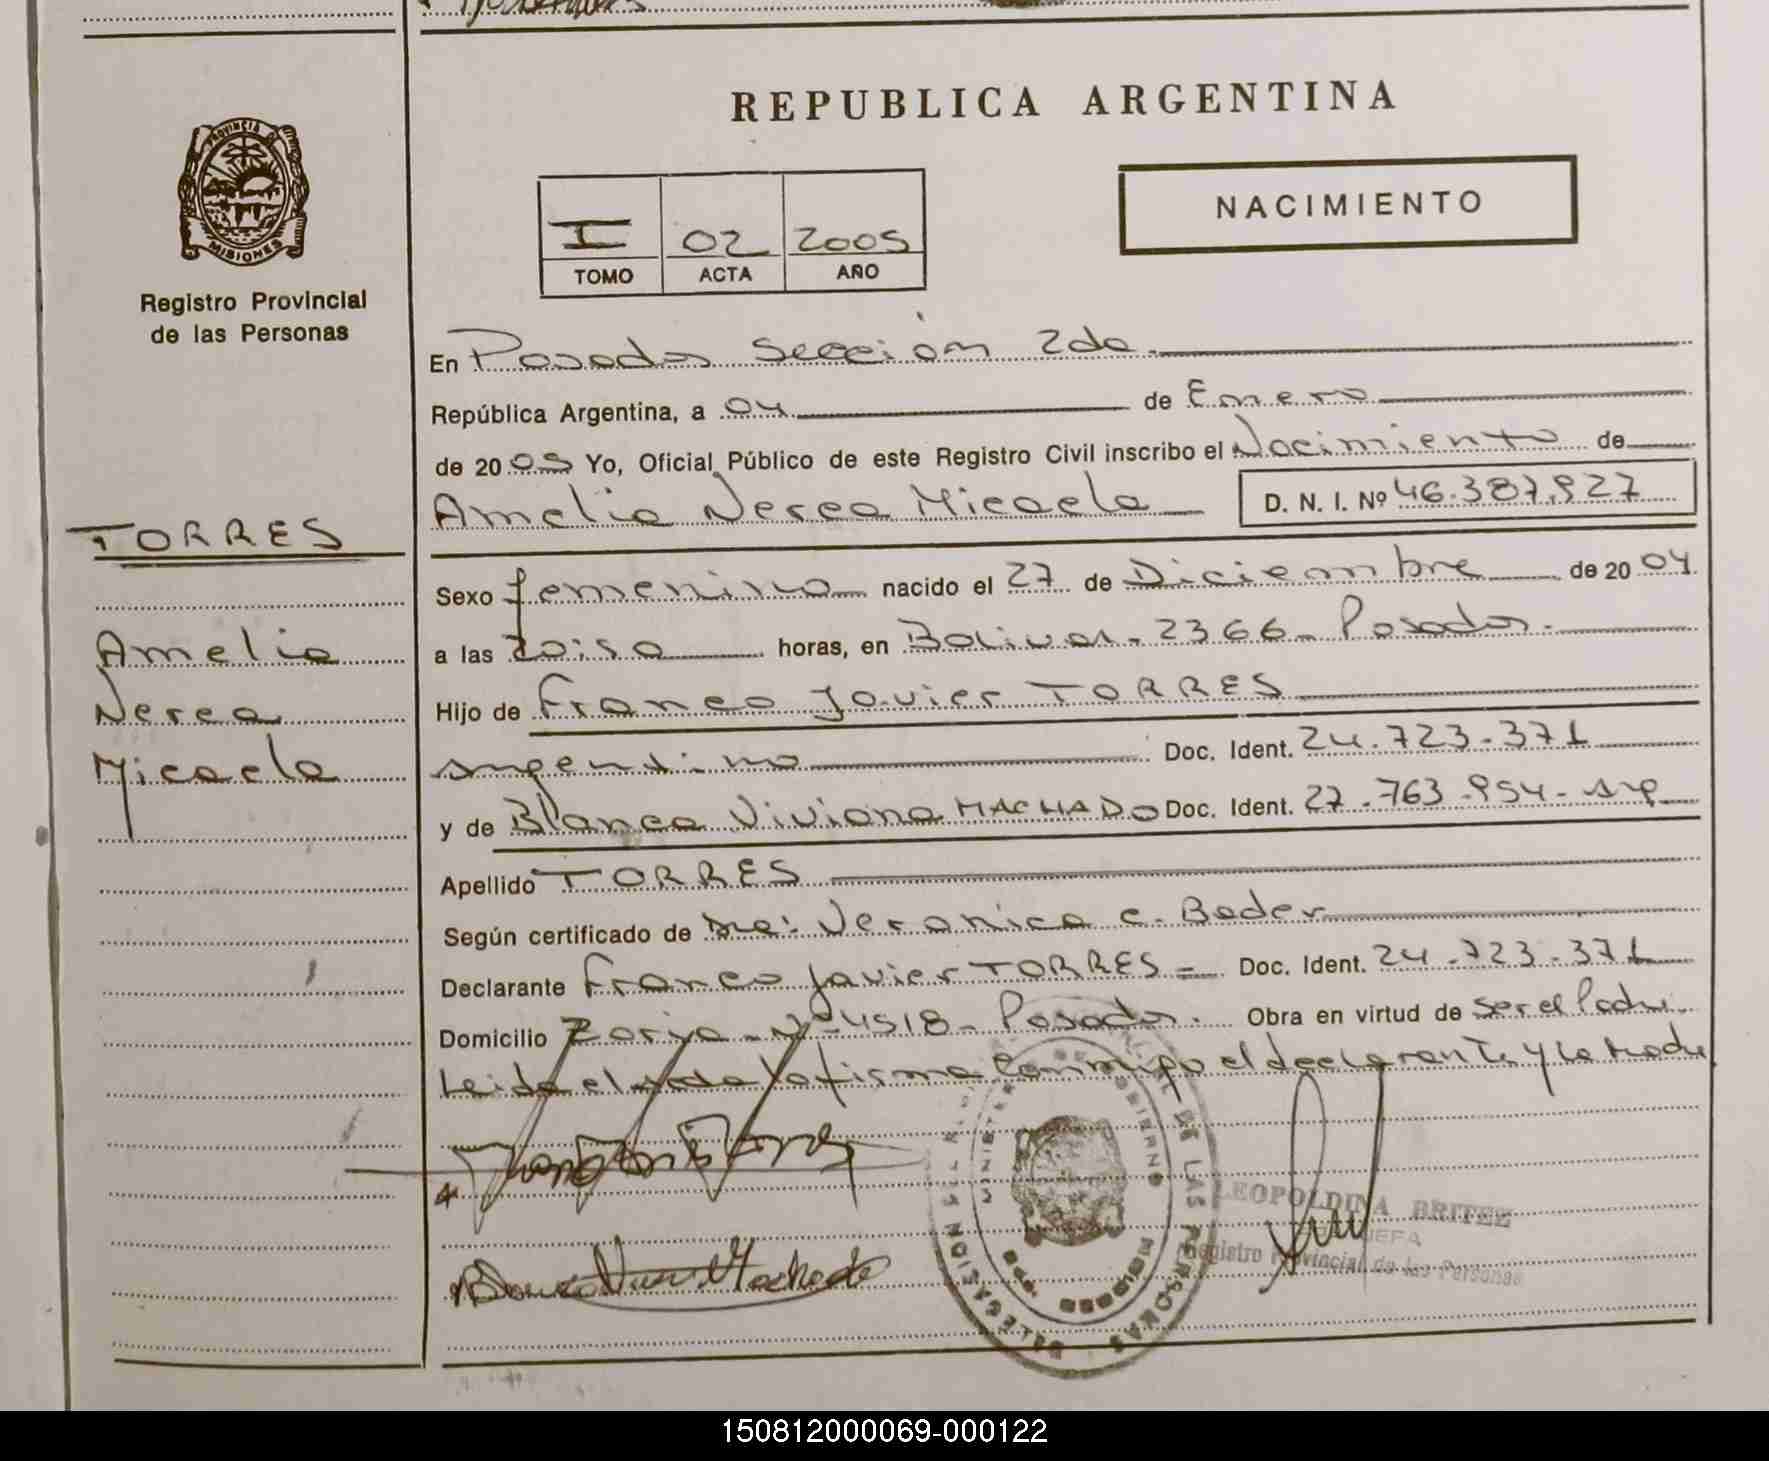 REPUBLICA ARGENTINA
PROVINCIA DE
MISIONES
Registro Provincial
de las Personas
I 02 2005
TOMO ACTA AÑO
NACIMIENTO
En Posadas Sección 2da.
República Argentina, a 04 de Enero
de 2005 Yo, Oficial Público de este Registro Civil inscribo el Nacimiento de
Amelia Nerea Micaela D. N. I. Nº 46.387.927
TORRES
Amelia
Nerea
Micaela
Sexo femenino nacido el 27 de Diciembre de 2004
a las 20:50 horas, en Bolivar - 2366 - Posadas.
Hijo de Franco Javier TORRES
argentino Doc. Ident. 24.723.371
y de Blanca Viviana MACHADO Doc. Ident. 27.763.954 - arg
Apellido TORRES
Según certificado de Dra: Veronica C. Bader
Declarante Franco Javier TORRES = Doc. Ident. 24.723.371
Domicilio Zorya - Nº 4518 - Posadas. Obra en virtud de ser el Padre
Leida el acta la firma conmigo el declarante y la Madre
LEOPOLDINA BRITEZ
JEFA
Registro Provincial de las Personas
150812000069-000122